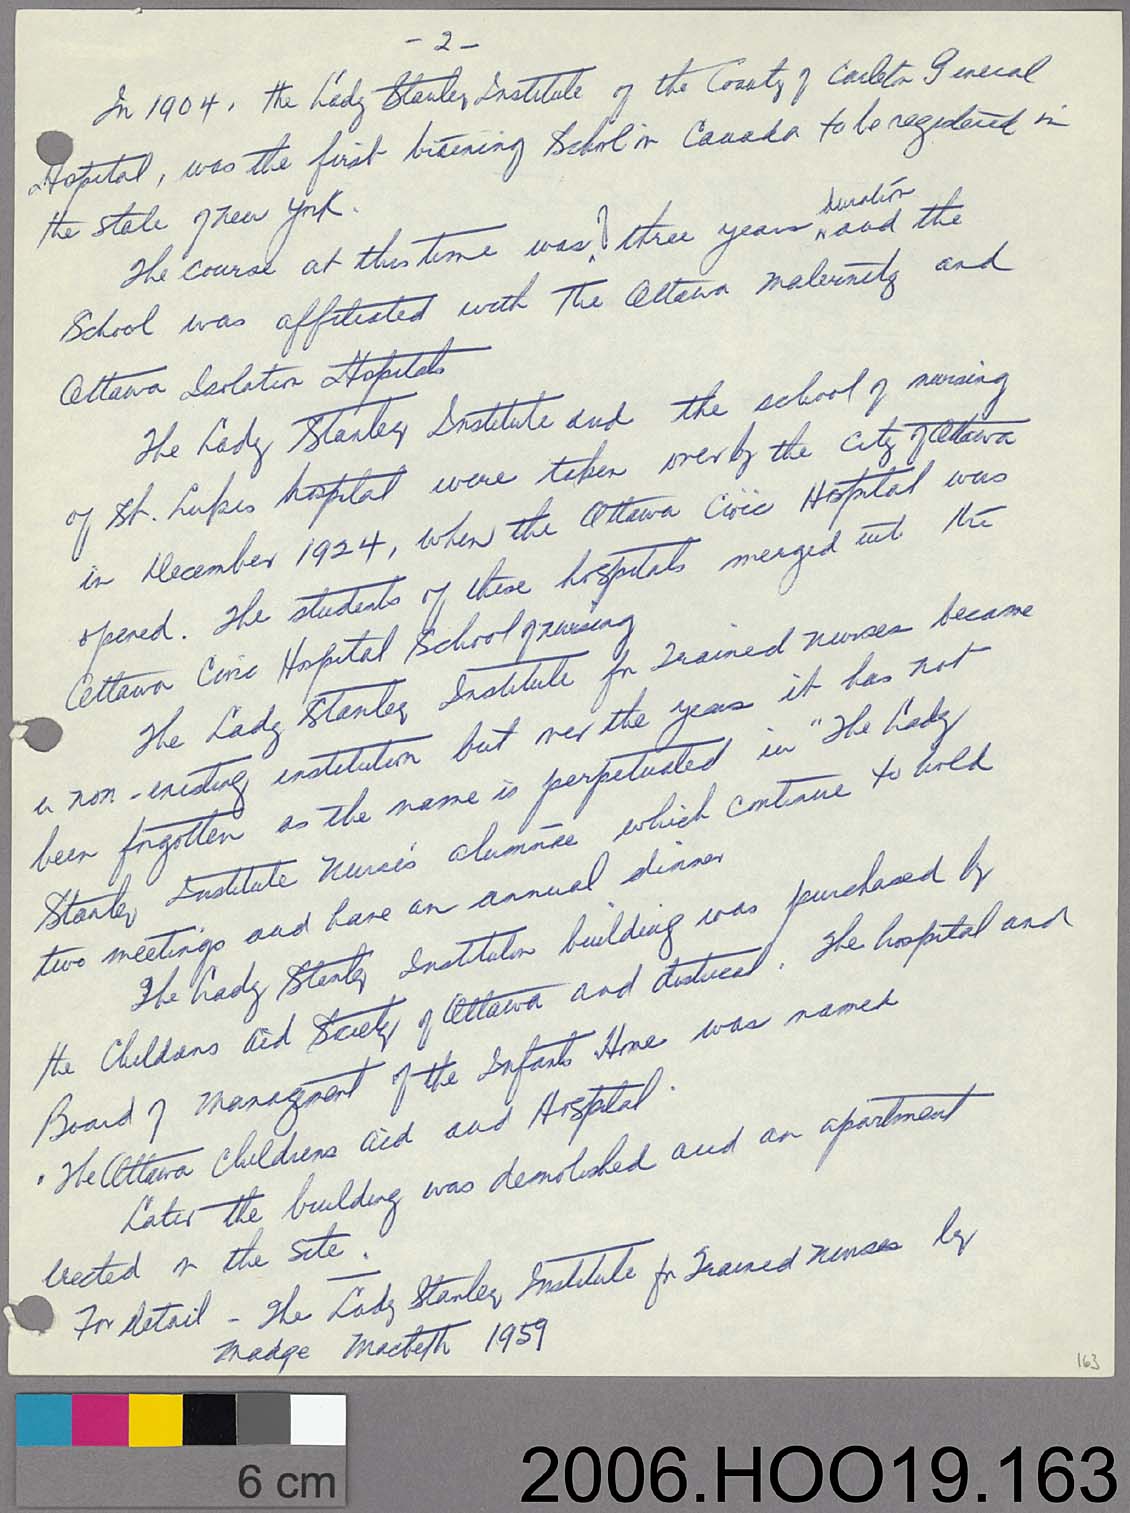 - 2 -
In 1904, the Lady Stanley Institute of the County of Carleton General
Hospital, was the first training School in Canada to be registered in
the State of New York.
duration
The course at this time was of three years and the
School was affiliated with The Ottawa Maternity and
Ottawa Isolation Hospitals
The Lady Stanley Institute and the school of nursing
of St. Lukes hospital were taken over by the City of Ottawa
in December 1924, when the Ottawa Civic Hospital was
opened. The students of these hospitals merged into the
Ottawa Civic Hospital School of nursing
The Lady Stanley Institute for Trained Nurses became
a non-existing institution but over the years it has not
been forgotten as the name is perpetuated in "The Lady
Stanley Institute Nurse's alumnae which continue to hold
two meetings and have an annual dinner
The Lady Stanley Institution building was purchased by
the Childrens Aid Society of Ottawa and district. The hospital and
Board of Managment of the Infants Home was named
"The Ottawa Childrens Aid and Hospital.
Later the building was demolished and an apartment
erected on the site.
For detail - The Lady Stanley Institute for Trained Nurses by
Madge Macbeth 1959
163
6 cm
2006.HOO19.163